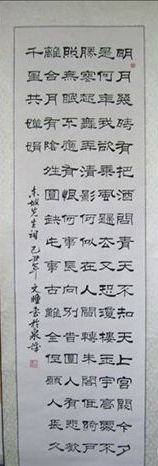 明月幾時有把酒問青天不知天上宮闕今夕
是何年我欲乘風歸去又恐瓊樓玉宇高處不
勝寒起舞弄清影何似在人間轉朱閣低綺戶
照無眠不應有恨何事長向別時圓人有悲歡
離合月有陰晴圓缺此事古難全但願人長久
千里共嬋娟
東坡先生詞己丑年文書於泉